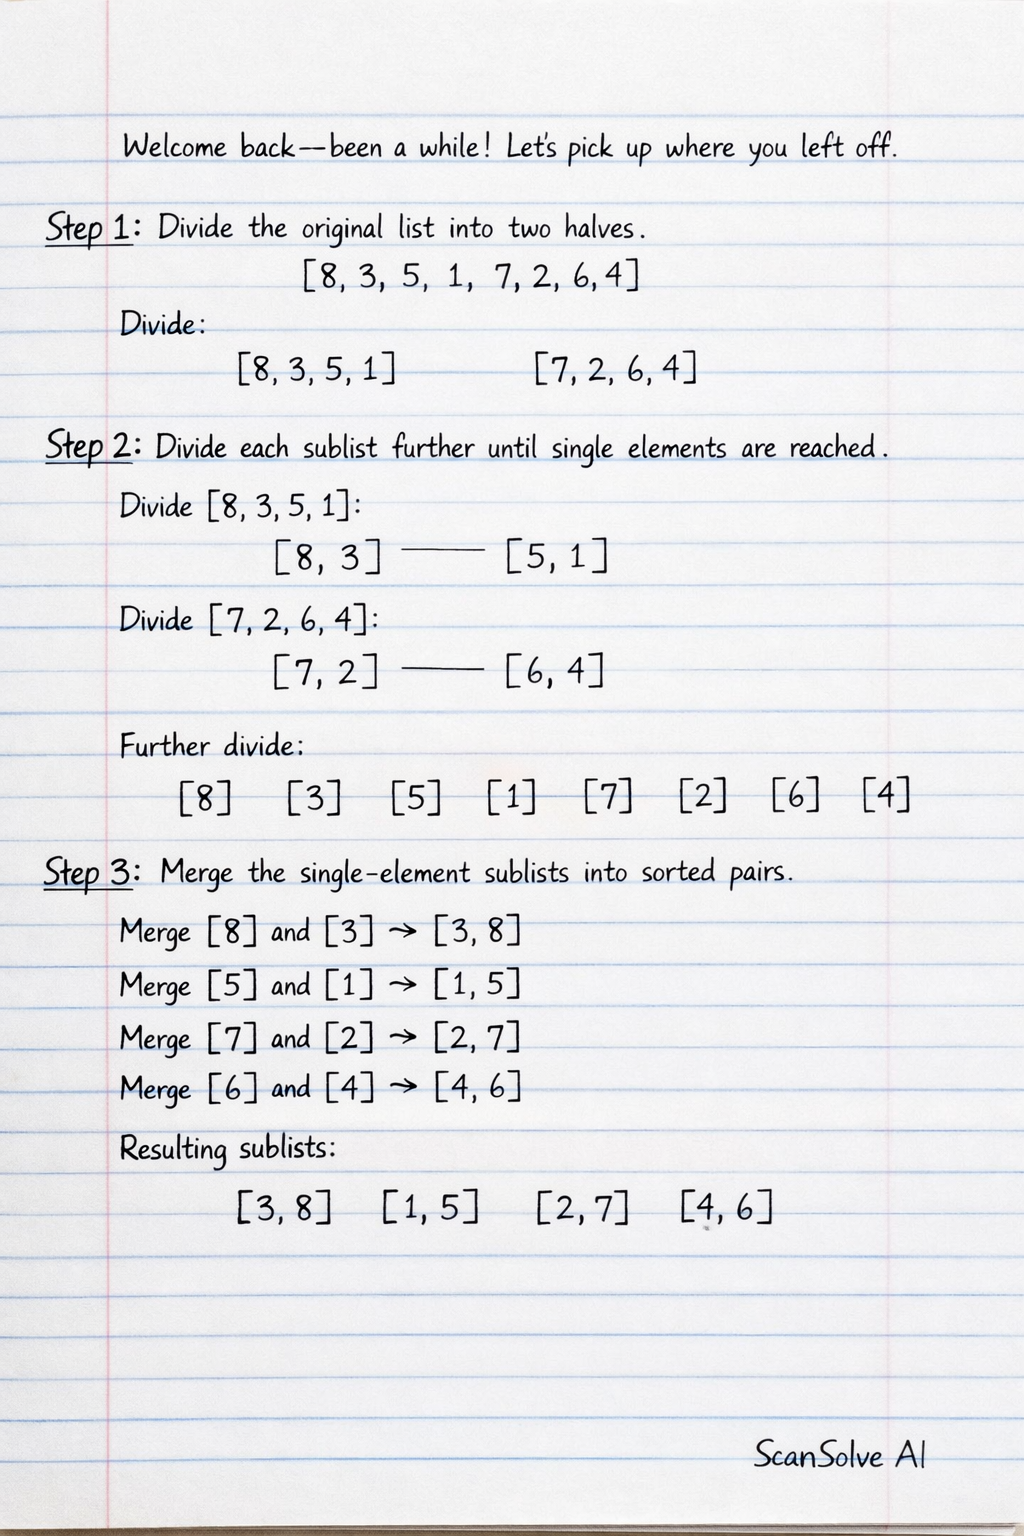 Welcome back—been a while! Let's pick up where you left off.
Step 1: Divide the original list into two halves.
[8, 3, 5, 1, 7, 2, 6, 4]
Divide:
[8, 3, 5, 1] [7, 2, 6, 4]
Step 2: Divide each sublist further until single elements are reached.
Divide [8, 3, 5, 1]:
[8, 3] —— [5, 1]
Divide [7, 2, 6, 4]:
[7, 2] —— [6, 4]
Further divide:
[8] [3] [5] [1] [7] [2] [6] [4]
Step 3: Merge the single-element sublists into sorted pairs.
Merge [8] and [3] → [3, 8]
Merge [5] and [1] → [1, 5]
Merge [7] and [2] → [2, 7]
Merge [6] and [4] → [4, 6]
Resulting sublists:
[3, 8] [1, 5] [2, 7] [4, 6]
ScanSolve AI